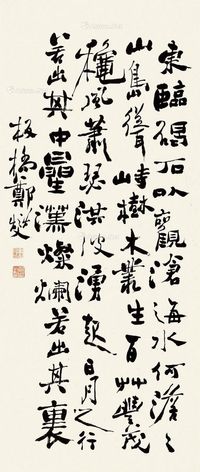 東臨碣石以觀滄海水何澹々
山島聳峙樹木叢生百艸豐茂
穐風蕭瑟洪波湧起日月之行
若出其中曐漢燦爛若出其裏
板橋鄭燮